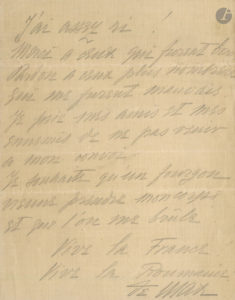 J'ai assez ri !
Merci à ceux qui furent bons
à ceux plus nombreux
qui me furent mauvais
Je prie mes amis et mes
ennemis de ne pas venir
a mon convoi
Je souhaite qu'un fourgon
vienne prendre mon corps
et que l'on me brûle
Vive la France
Vive la Roumanie
De Max